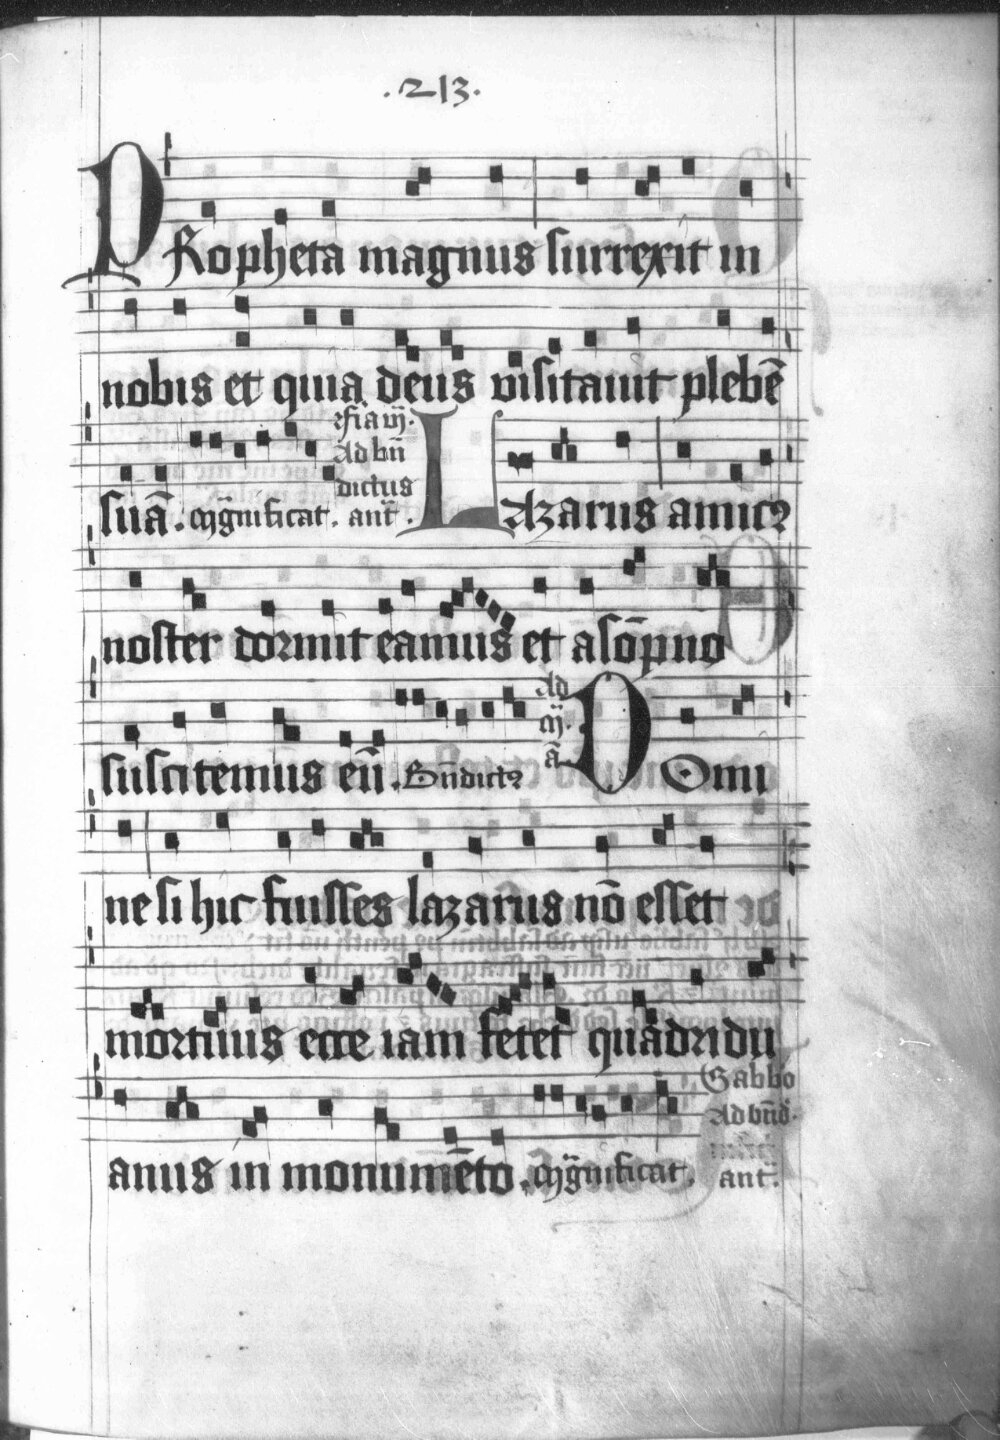 .213.
PRopheta magnus surrexit in
nobis et quia deus visitauit plebē
suā. mg̅nificat. ant̅.
Ad bn̅
dictus
LAzarus amicꝰ
noster dormit eamus et a sōpno
suscitemus eū. Bn̅dictꝰ
Ad
m̅.
a̅.
DOmi
ne si hic fuisses lazarus nō esset
mortuus ecce iam fetet quadridu
anus in monumēto. mg̅nificat.
Sabbo
Ad bn̅d̅.
ant̅.